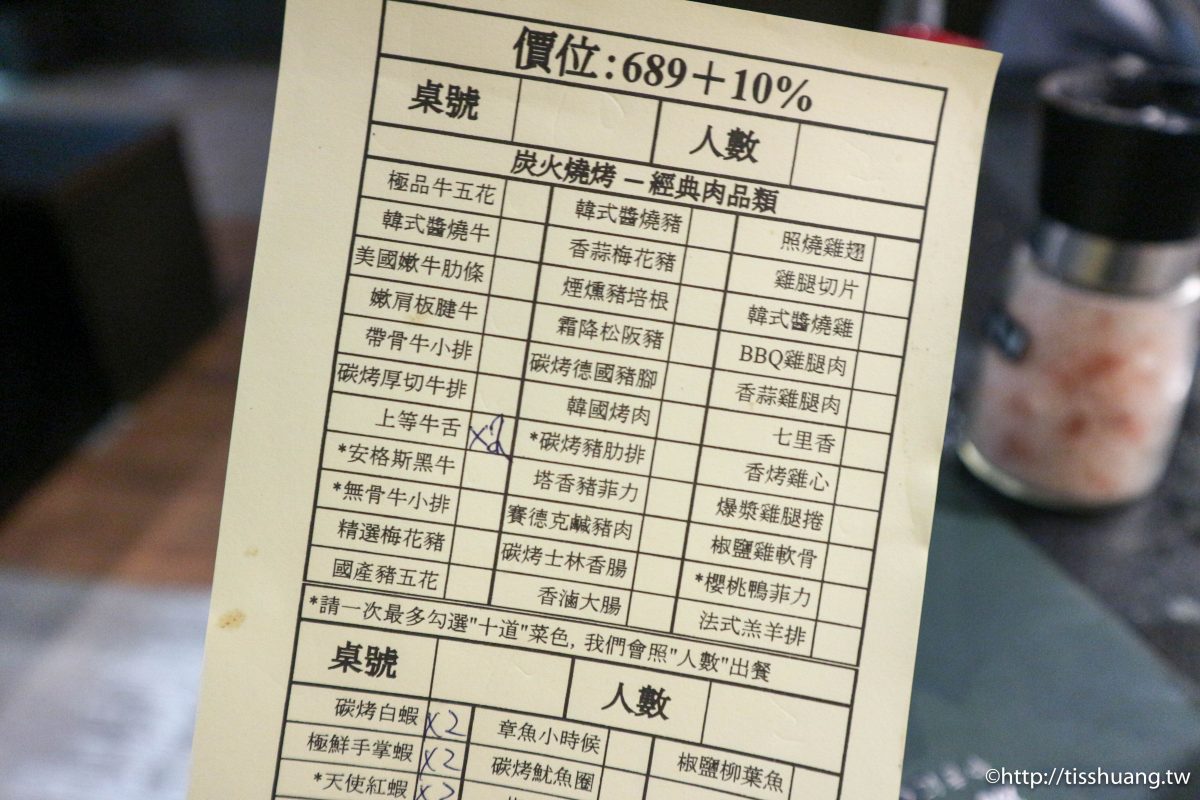 價位:689＋10%
桌號 人數
炭火燒烤－經典肉品類
極品牛五花 韓式醬燒豬 照燒雞翅
韓式醬燒牛 香蒜梅花豬 雞腿切片
美國嫩牛肋條 煙燻豬培根 韓式醬燒雞
嫩肩板腱牛 霜降松阪豬 BBQ雞腿肉
帶骨牛小排 碳烤德國豬腳 香蒜雞腿肉
碳烤厚切牛排 韓國烤肉 七里香
上等牛舌 x2 *碳烤豬肋排 香烤雞心
*安格斯黑牛 塔香豬菲力 爆漿雞腿捲
*無骨牛小排 賽德克鹹豬肉 椒鹽雞軟骨
精選梅花豬 碳烤士林香腸 *櫻桃鴨菲力
國產豬五花 香滷大腸 法式羔羊排
*請一次最多勾選"十道"菜色, 我們會照"人數"出餐
桌號 人數
碳烤白蝦 x2 章魚小時候 椒鹽柳葉魚
極鮮手掌蝦 x2 碳烤魷魚圈
*天使紅蝦 x2
©http://tisshuang.tw